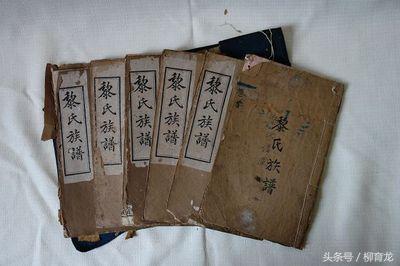 黎氏族譜
黎氏族譜
黎氏族譜
黎氏族譜
黎氏族譜
黎氏族譜
头条号 / 柳育龙